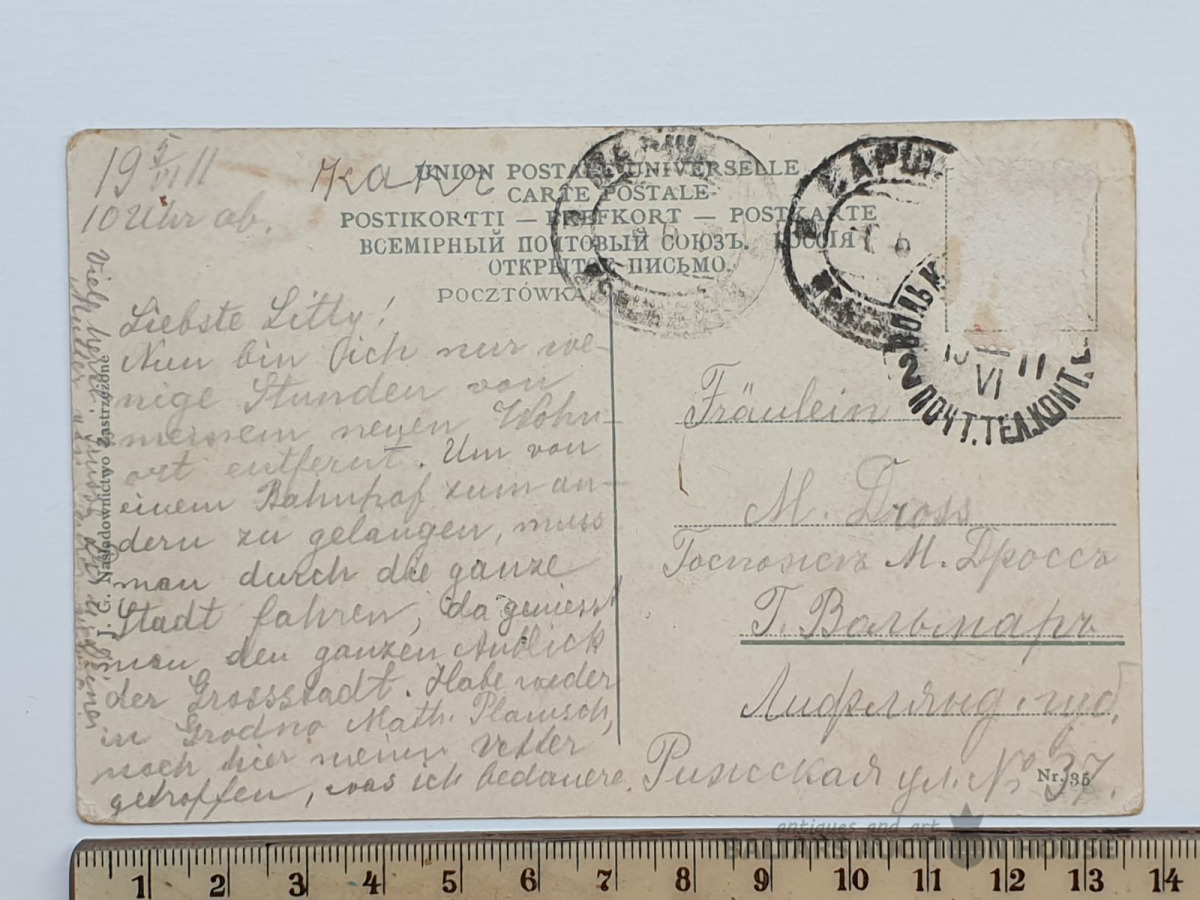 19 5/VI 11
10 Uhr ab.
UNION POSTALE UNIVERSELLE
CARTE POSTALE
POSTIKORTTI — BREFKORT — POSTKARTE
ВСЕМІРНЫЙ ПОЧТОВЫЙ СОЮЗЪ. РОССІЯ
ОТКРЫТОЕ ПИСЬМО.
POCZTÓWKA
Liebste Litty!
Nun bin ich nur we-
nige Stunden von
meinem neuen Wohn-
ort entfernt. Um von
einem Bahnhof zum an-
dern zu gelangen, muss
man durch die ganze
Stadt fahren, da geniesst
man den ganzen Anblick
der Grossstadt. Habe weder
in Grodno Math. Plawsch,
noch hier meinen Vetter
getroffen, was ich bedauere.
J. C. Nasładownictwo Zastrzeżone
Fräulein
M. Dross
Госпожѣ М. Дроссъ
Г. Вольмаръ
Лифлянд. губ.
Рижская ул. № 37.
Nr. 35
ПОЧТ. ТЕЛ. КОНТ.
VI 11
antiques and art
1 2 3 4 5 6 7 8 9 10 11 12 13 14